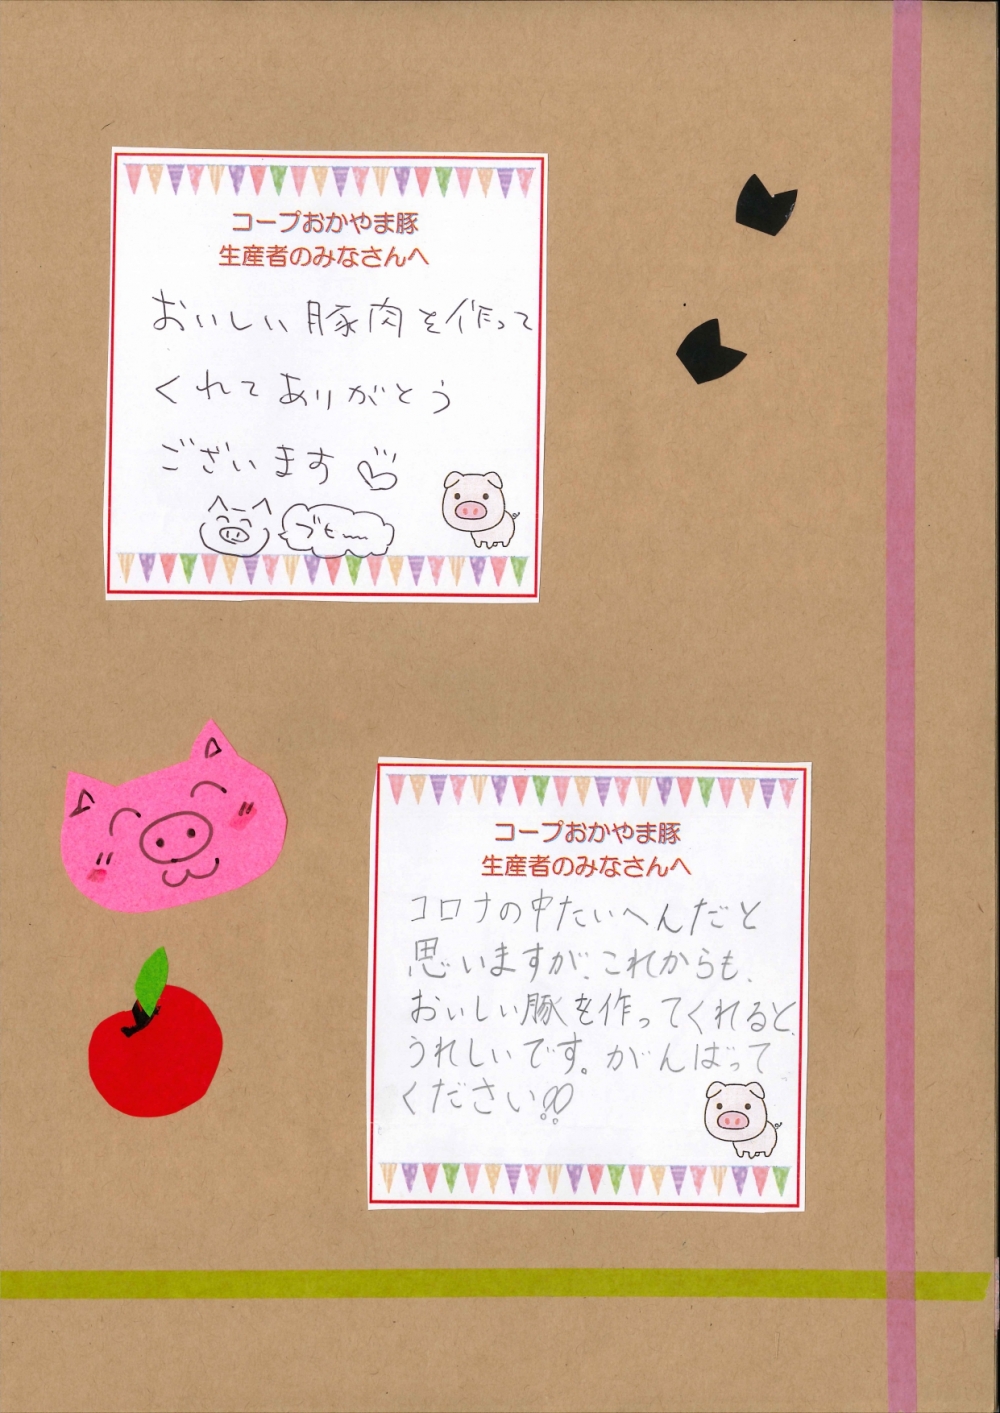 コープおかやま豚
生産者のみなさんへ
おいしい豚肉を作って
くれてありがとう
ございます♡
ブヒー
コープおかやま豚
生産者のみなさんへ
コロナの中たいへんだと
思いますが、これからも、
おいしい豚を作ってくれると、
うれしいです。がんばって
ください!!